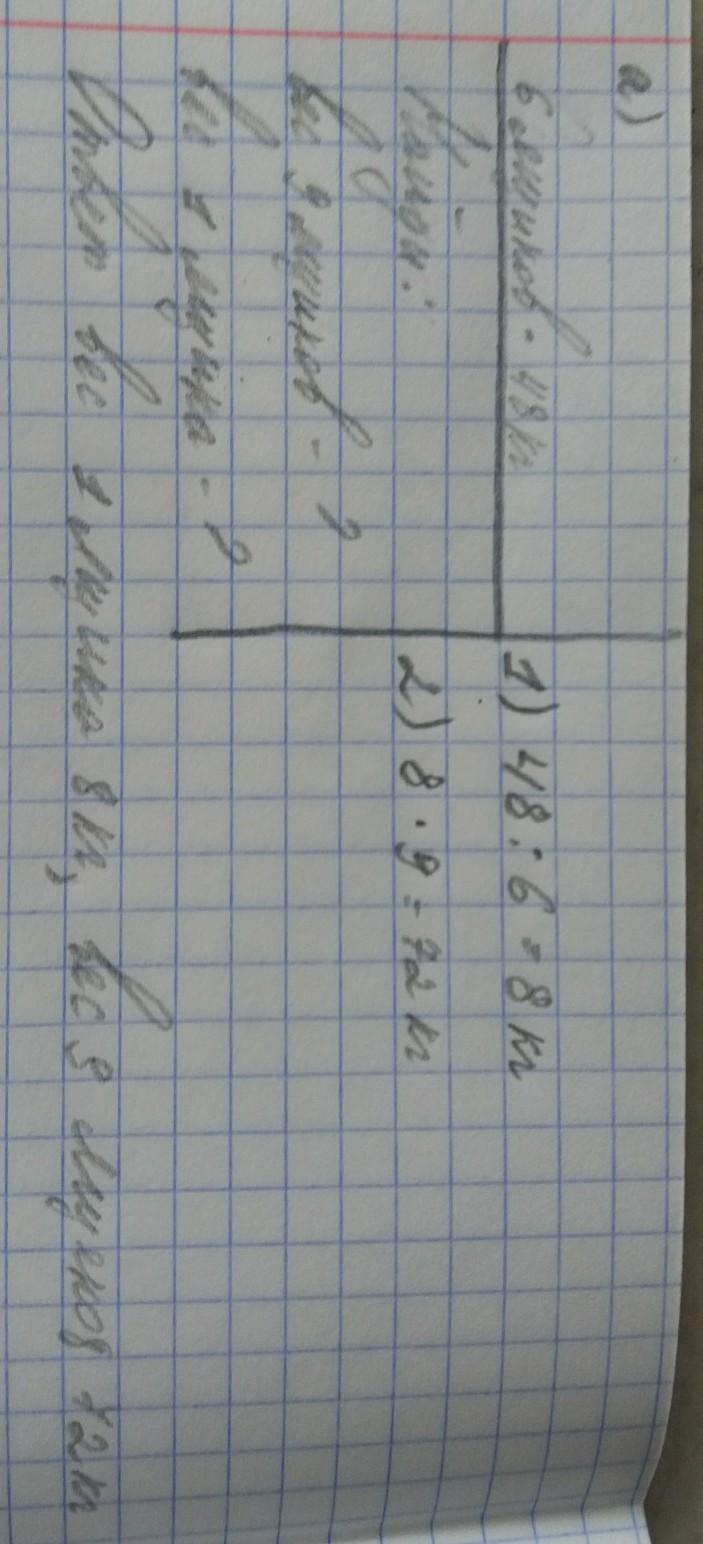 а)
6 ящиков - 48 кг
Найди:
вес 9 ящиков - ?
вес 1 ящика - ?
1) 48 : 6 = 8 кг
2) 8 · 9 = 72 кг
Ответ вес 1 ящика 8 кг, вес 9 ящиков 72 кг